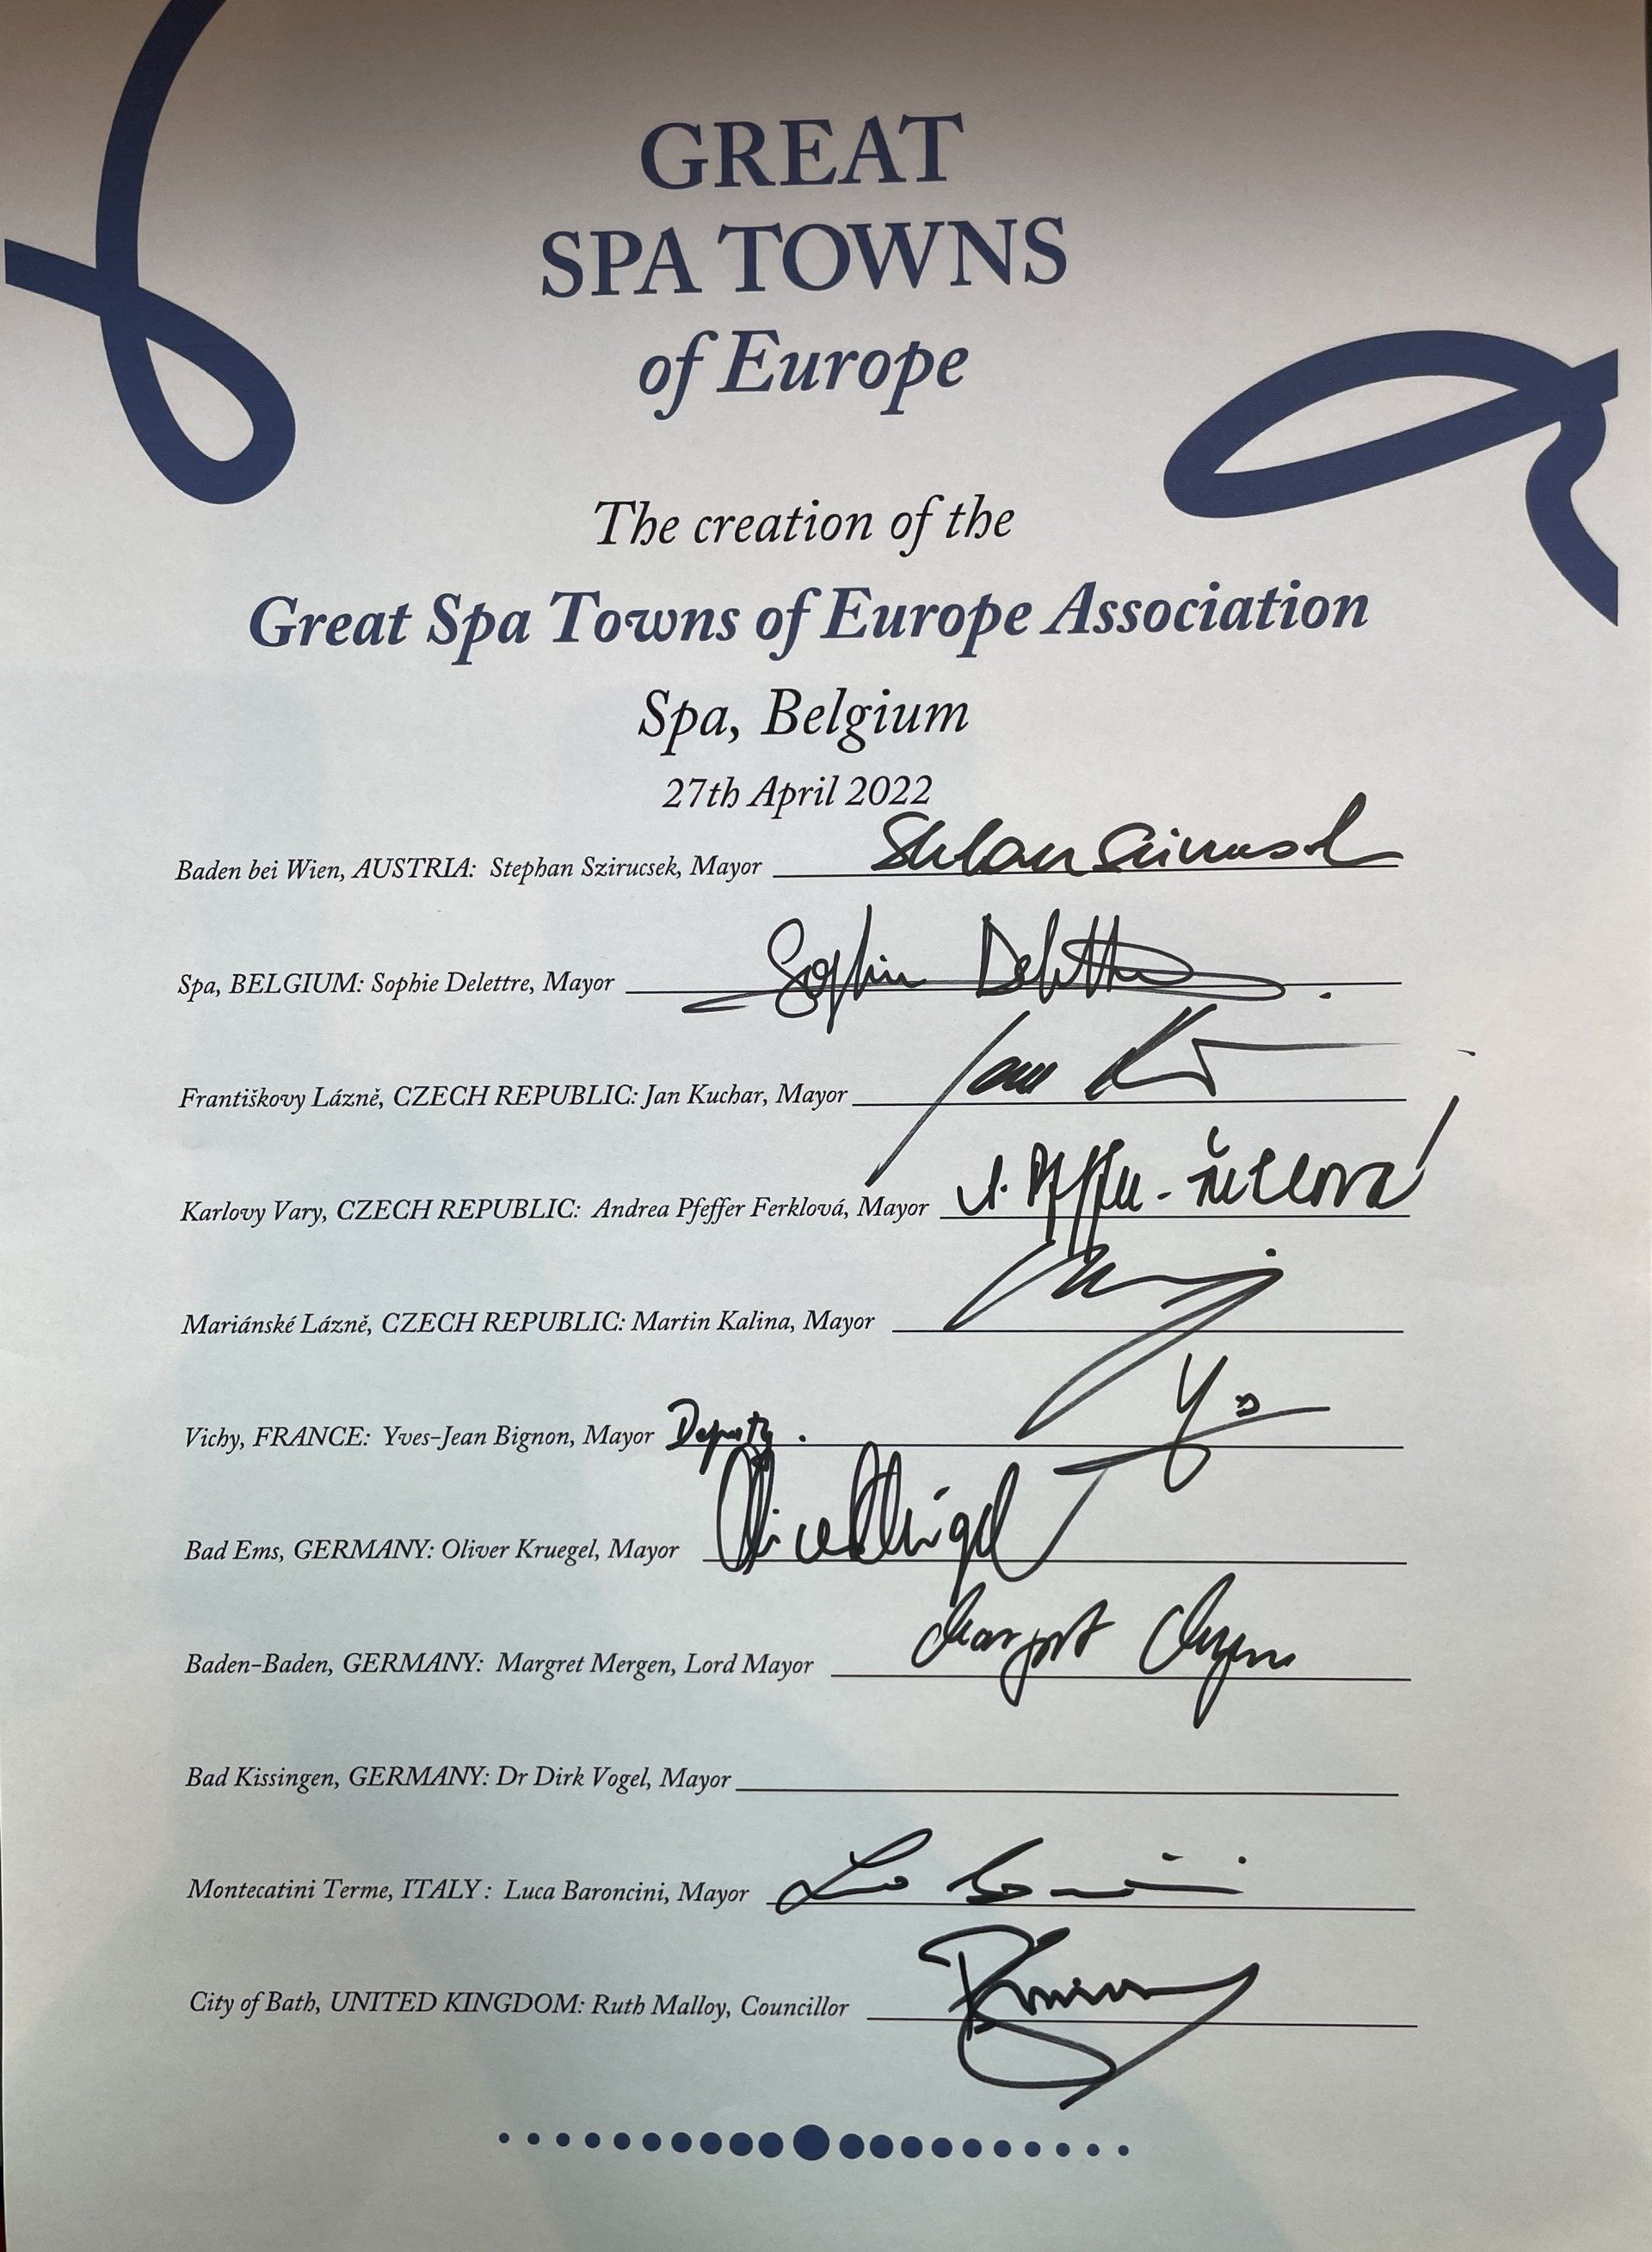 GREAT
SPA TOWNS
of Europe
The creation of the
Great Spa Towns of Europe Association
Spa, Belgium
27th April 2022
Baden bei Wien, AUSTRIA: Stephan Szirucsek, Mayor
Spa, BELGIUM: Sophie Delettre, Mayor Sophie Delettre
Františkovy Lázně, CZECH REPUBLIC: Jan Kuchar, Mayor Jan
Karlovy Vary, CZECH REPUBLIC: Andrea Pfeffer Ferklová, Mayor
Mariánské Lázně, CZECH REPUBLIC: Martin Kalina, Mayor
Vichy, FRANCE: Yves-Jean Bignon, Mayor Deputy.
Bad Ems, GERMANY: Oliver Kruegel, Mayor
Baden-Baden, GERMANY: Margret Mergen, Lord Mayor
Bad Kissingen, GERMANY: Dr Dirk Vogel, Mayor
Montecatini Terme, ITALY : Luca Baroncini, Mayor
City of Bath, UNITED KINGDOM: Ruth Malloy, Councillor